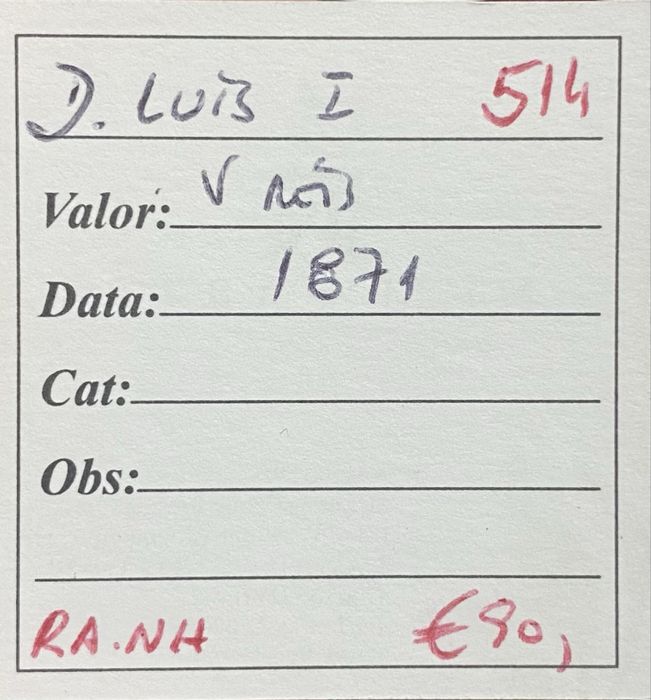 D. LUIS I 514
Valor: V REIS
Data: 1871
Cat:
Obs:
RA.NH €90,